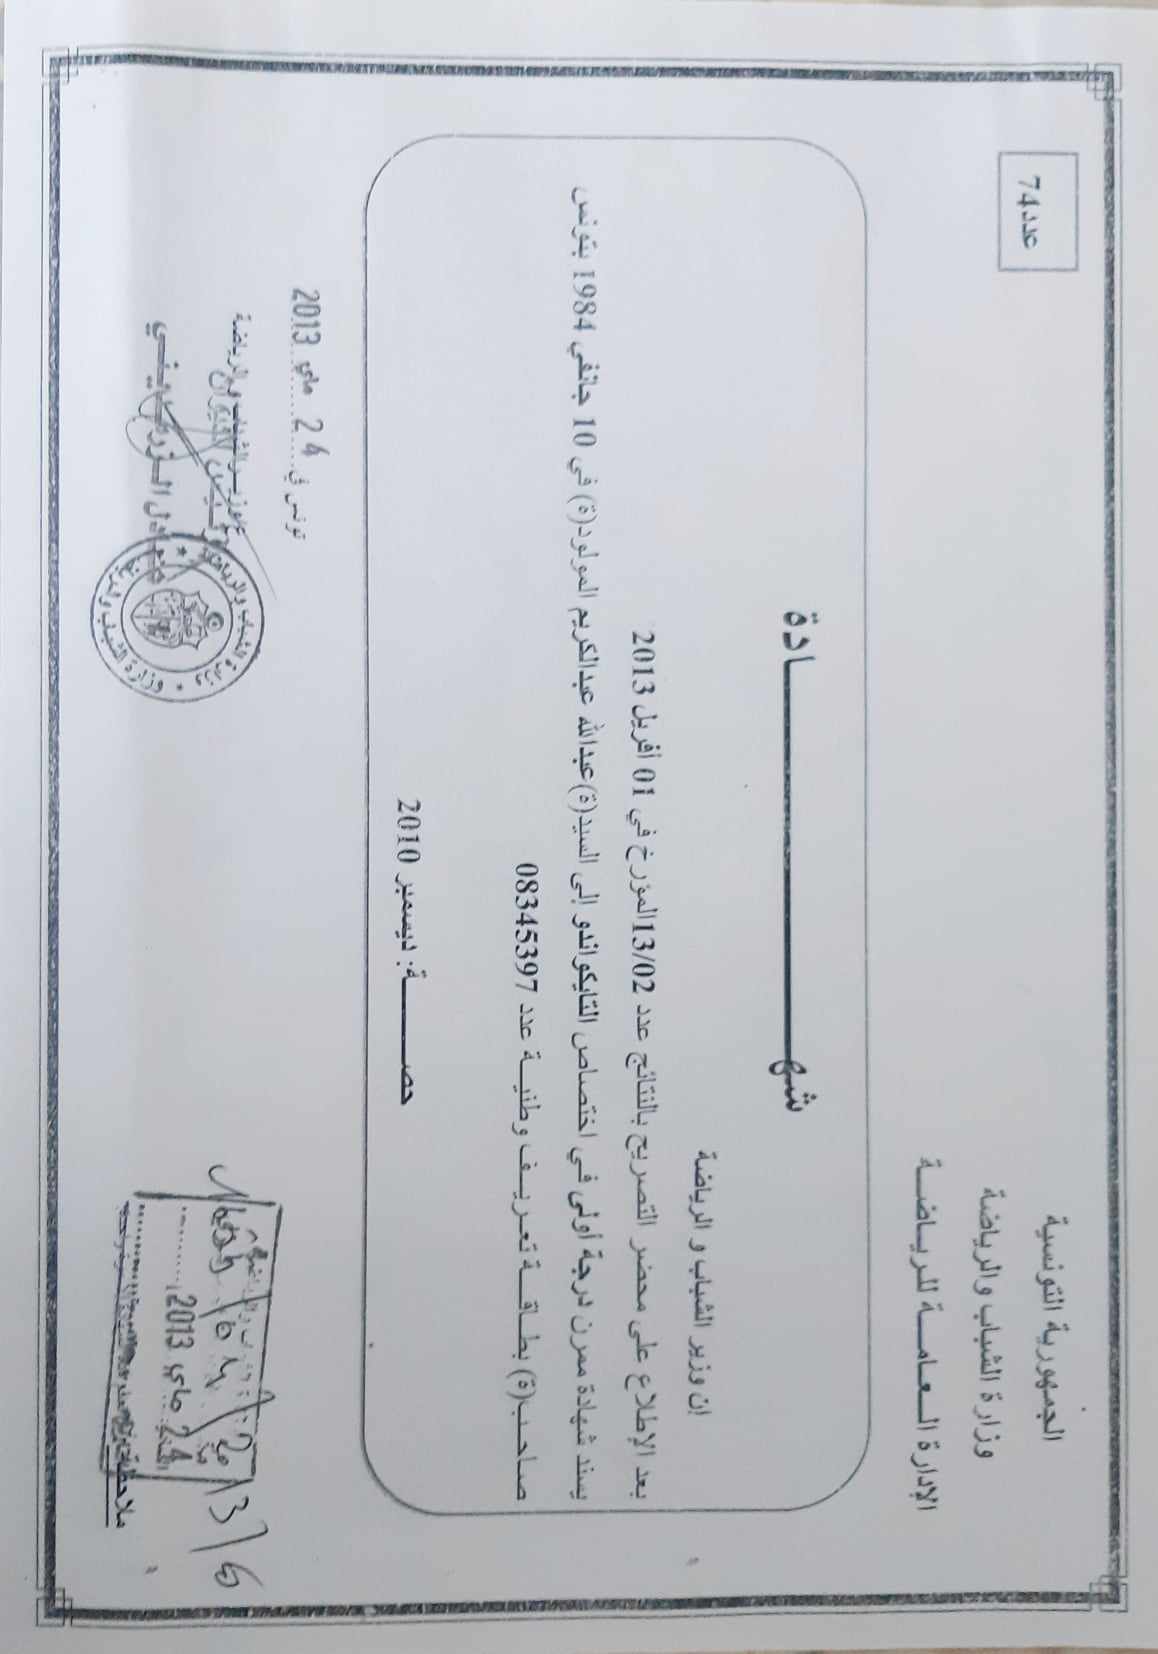 الجمهورية التونسية
وزارة الشباب والرياضة
الإدارة العامة للرياضة
عدد 74
شهادة
إن وزير الشباب و الرياضة
بعد الإطلاع على محضر التصريح بالنتائج عدد 13/02 المؤرخ في 01 أفريل 2013
يسند شهادة ممرن درجة أولى في اختصاص التايكواندو إلى السيد(ة) عبدالله عبدالكريم المولود(ة) في 10 جانفي 1984 بتونس
صاحب(ة) بطاقة تعريف وطنية عدد 08345397
حصة: ديسمبر 2010
تونس في 24 ماي 2013
وزير الشباب و الرياضة
وزارة الشباب والرياضة
24 ماي 2013